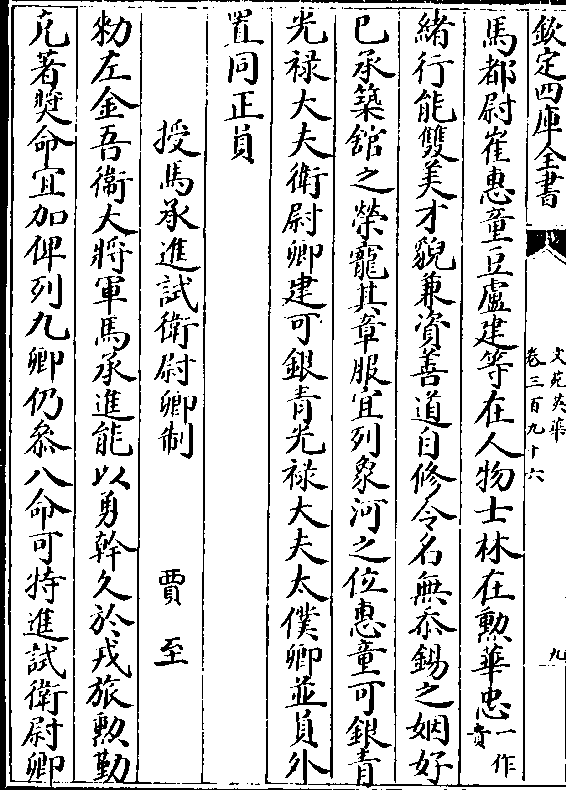 欽定四庫全書
文苑英華
卷三百九十六
九
馬都尉崔惠童豆盧建等在人物士林在勲華忠一作貴
緒行能雙美才貌兼資善道自修令名無忝錫之姻好
已承築舘之榮寵其章服宜列象河之位惠童可銀青
光禄大夫衛尉卿建可銀青光禄大夫太僕卿並員外
置同正員
授馬承進試衛尉卿制
賈至
勑左金吾衛大將軍馬承進能以勇幹久於戎旅勲勤
克著奬命宜加俾列九卿仍叅八命可特進試衛尉卿